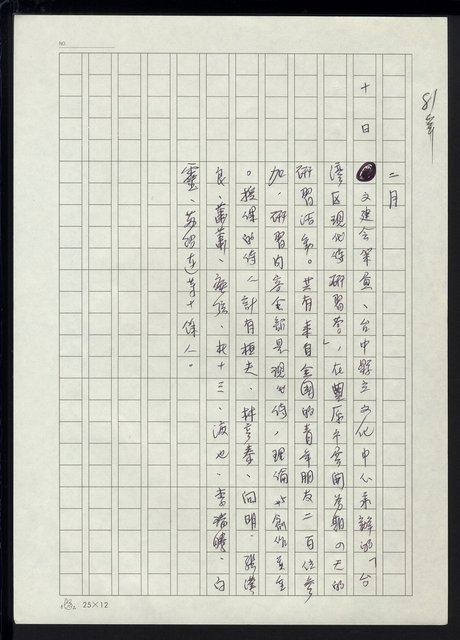 NO.
81年
二月
十日 文建會策畫、台中縣立文化中心承辦的「台
灣区現代詩研習營」,在豐原半月開為期四天的
研習活動。共有來自全國的青年朋友二百位參
加,研習內容全部是現代詩,理論與創作並重
。授課的詩人計有桓夫、林亨泰、向明、張漢
良、蕭蕭、瘂弦、杜十三、渡也、李瑞騰、白
靈、苏紹连等十餘人。
25×12